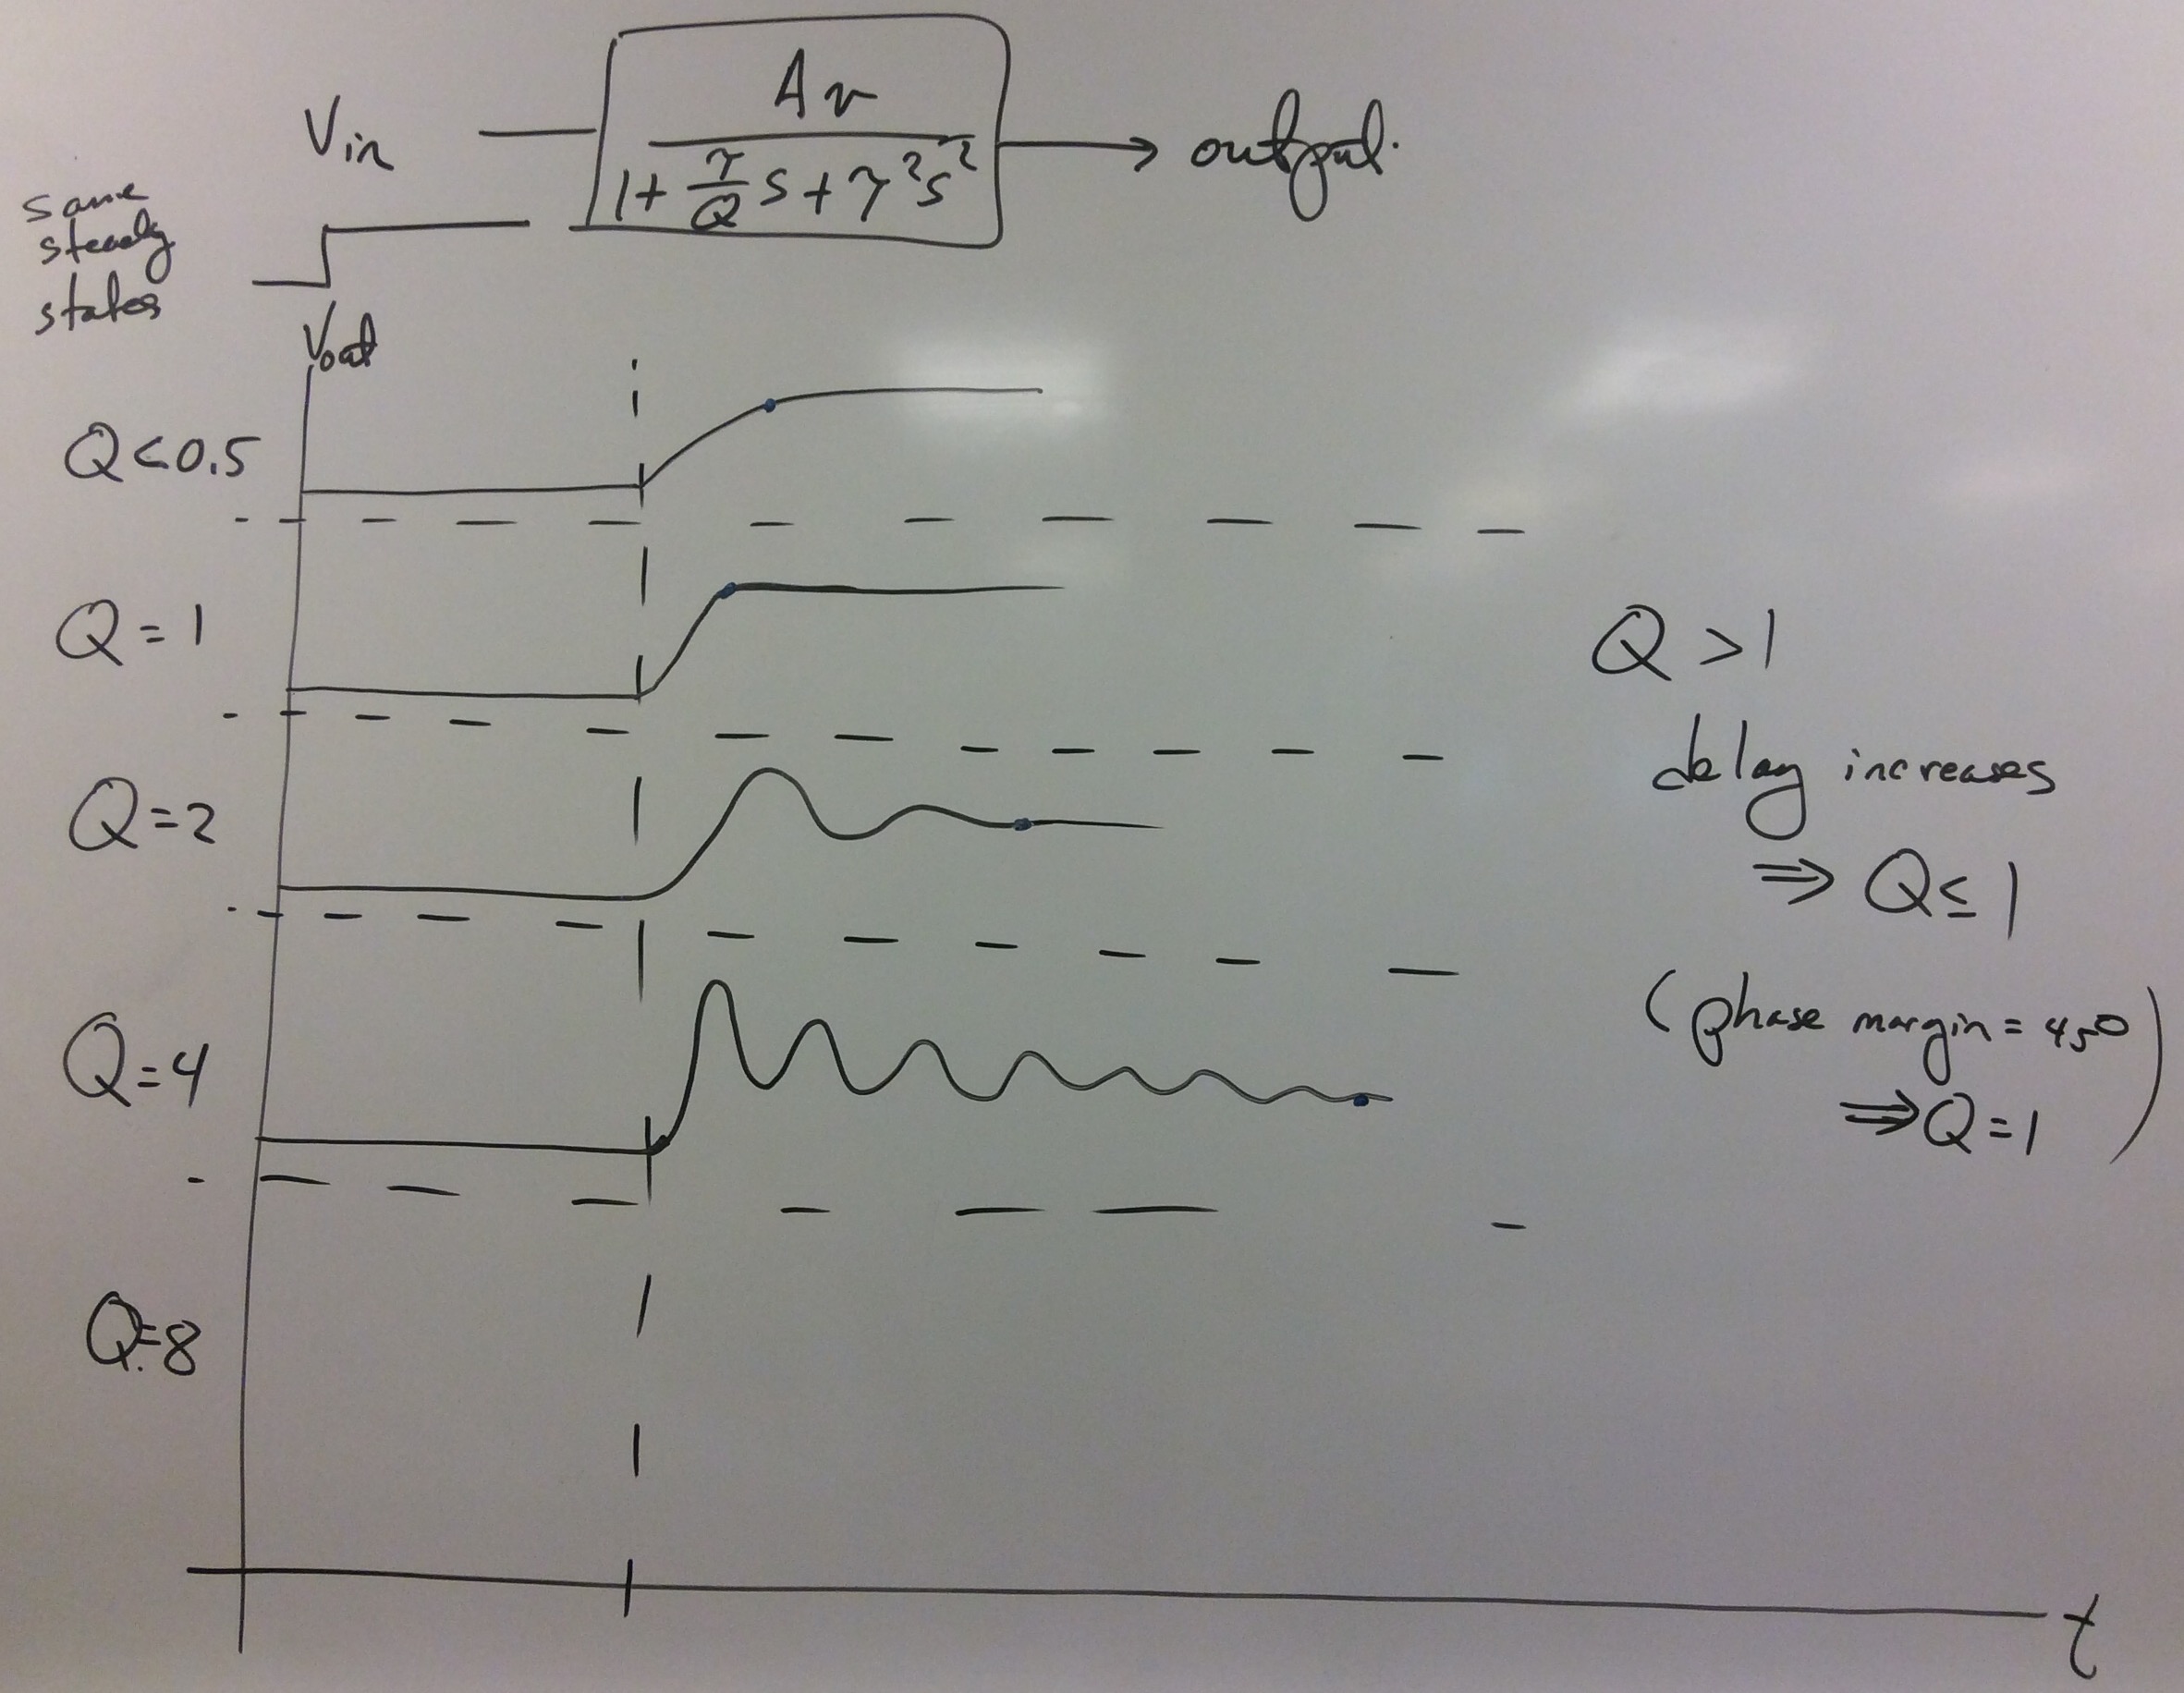 Vin
Av
1 + τ/Q s + τ²s²
output.
same
steady
states
Vout
Q<0.5
Q=1
Q=2
Q=4
Q=8
Q>1
delay increases
⇒ Q≤1
(phase margin = 45°
⇒ Q=1)
t